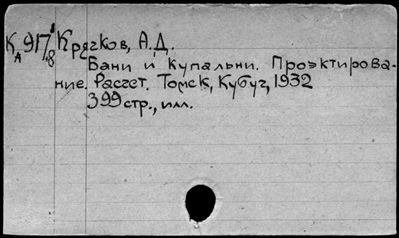 К 917 Крячков, А.Д.
А 8
Бани и купальни. Проэктирова-
ние. Расчет. Томск, Кубуч, 1932
399 стр., илл.